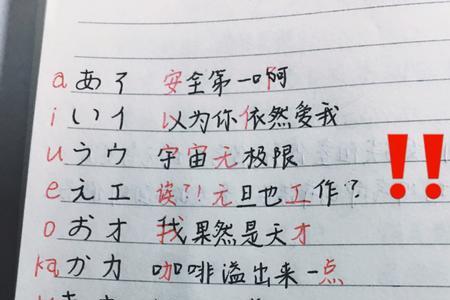 a あア 安全第一啊
i いイ 以为你依然爱我
u うウ 宇宙无极限
e えエ 诶?! 元旦也工作?
o おオ 我果然是天才
ka かカ 咖啡溢出来一点
‼